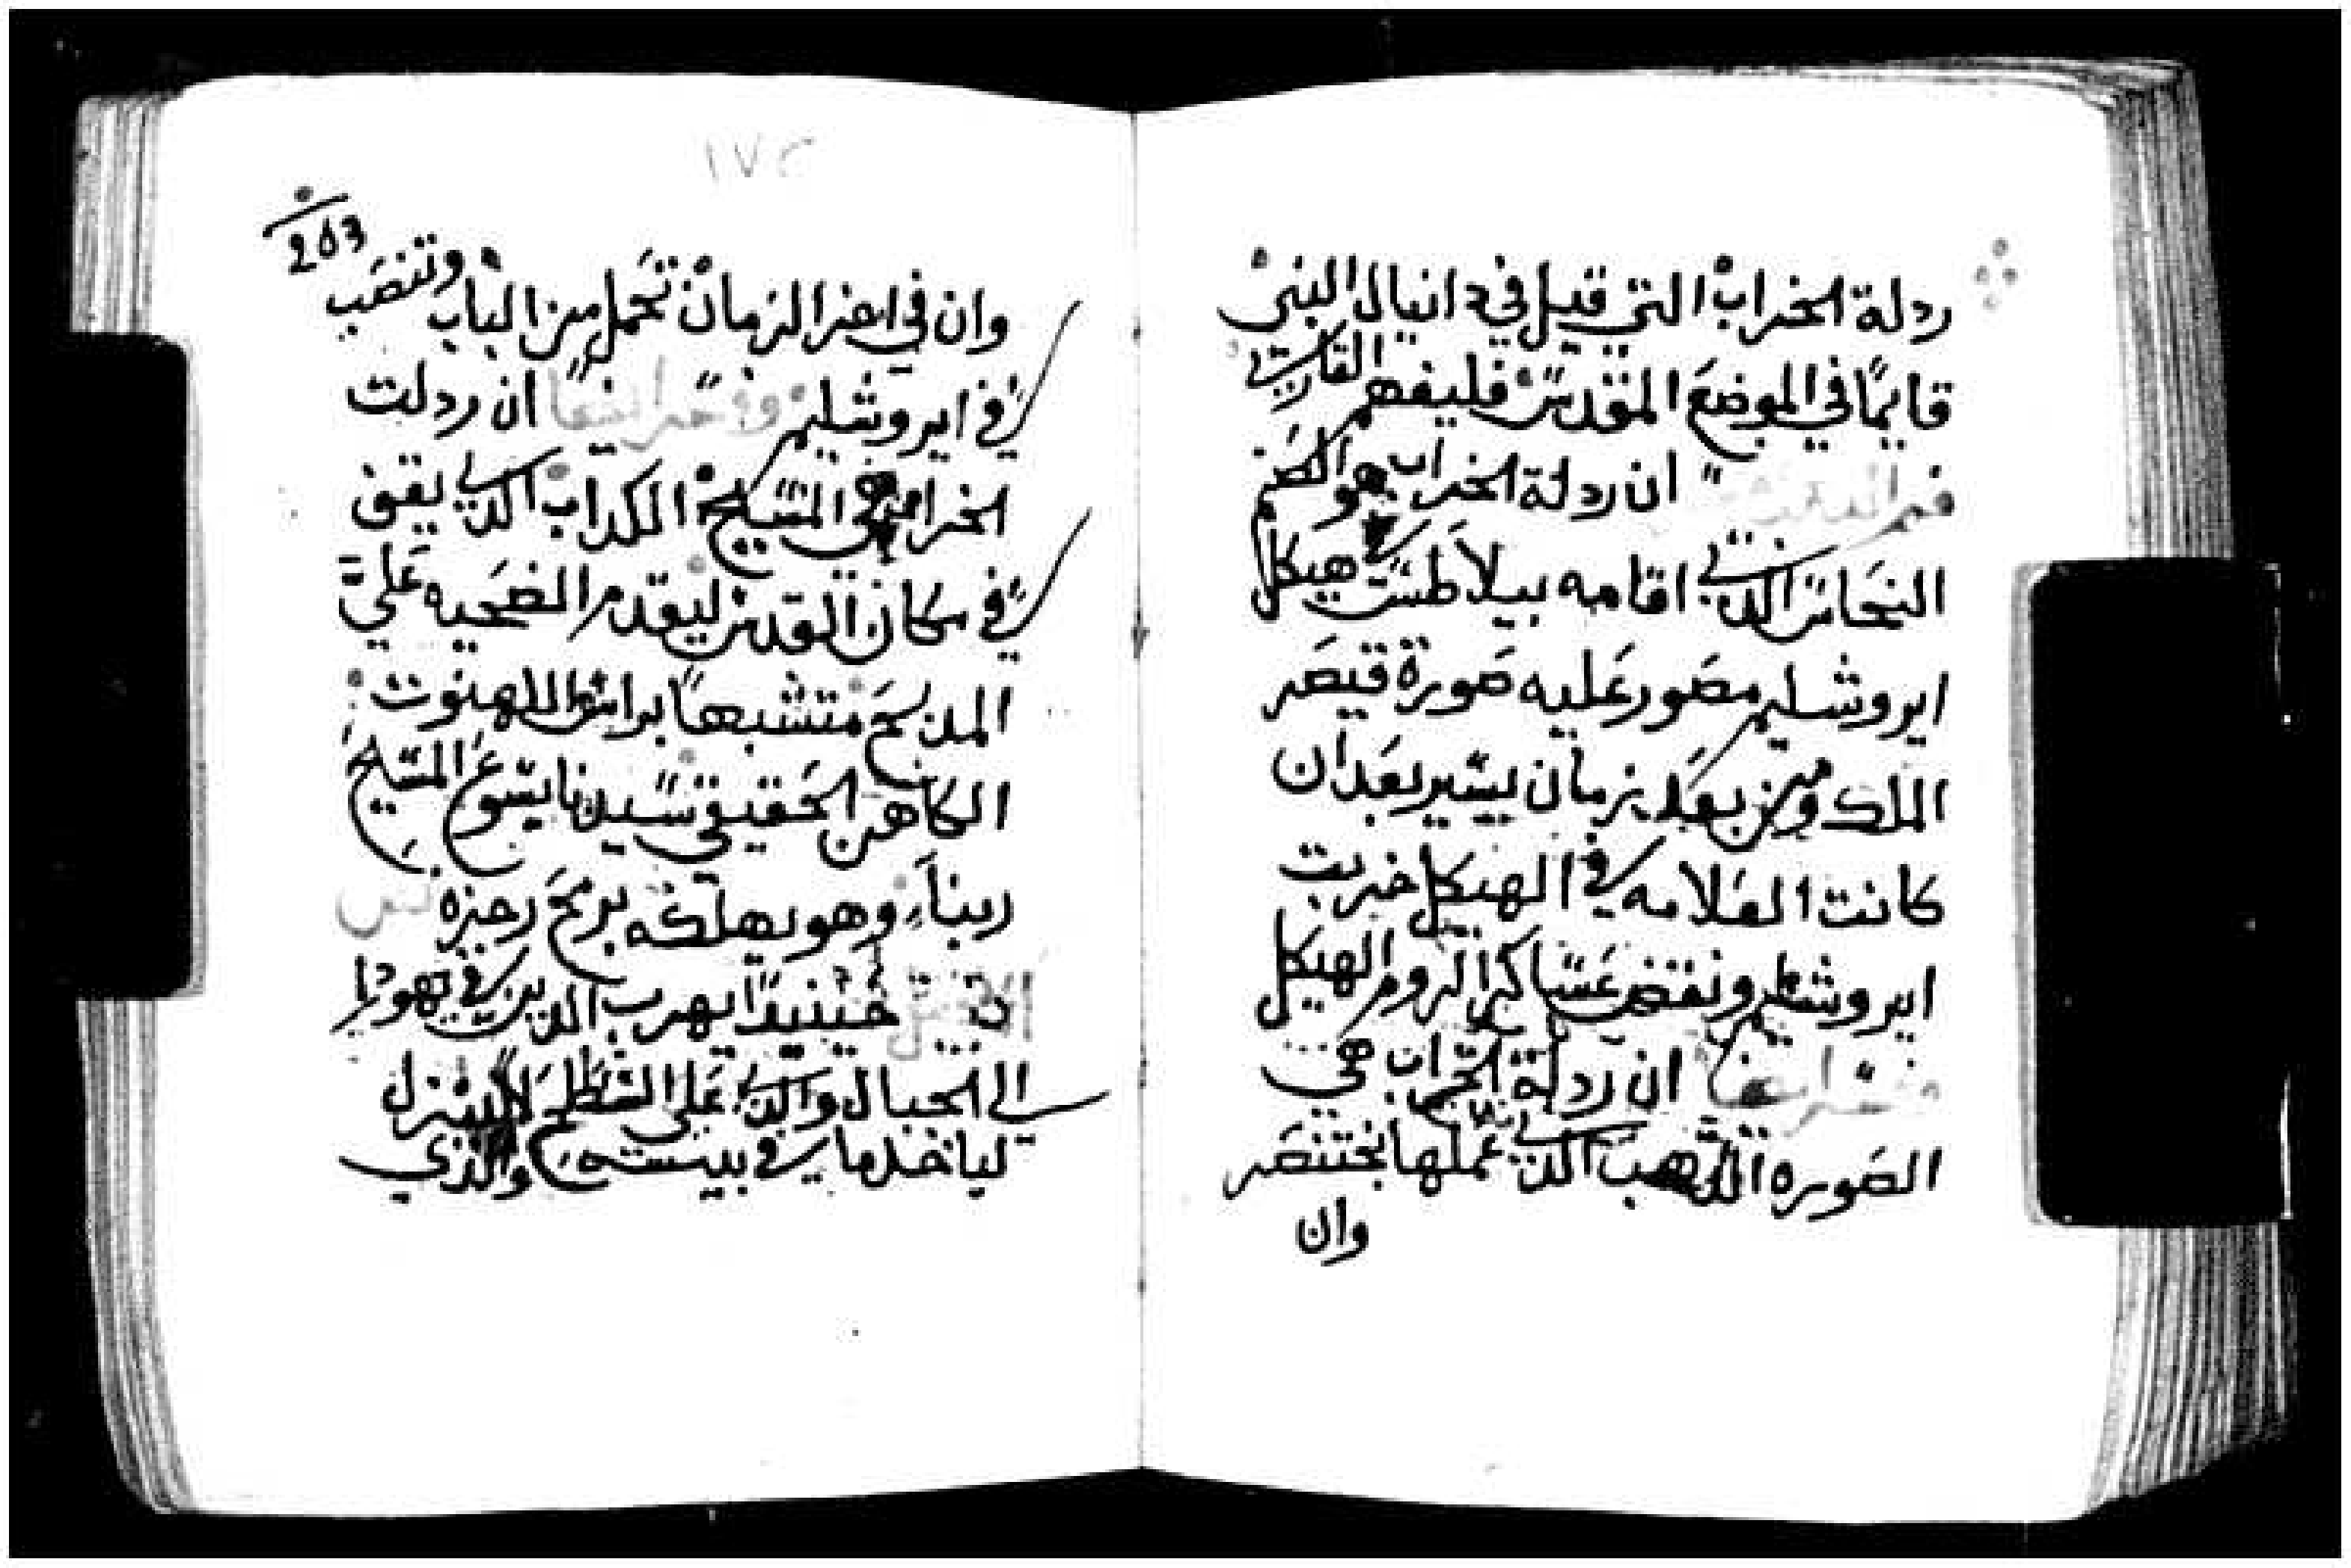 ردلة الخراب التي قيل في دانيال النبي
قايمًا في الموضع المقدس فليفهم القاري
ان ردلة الخراب هو الصنم
النحاس الذي اقامه بيلاطس في هيكل
ايروشليم مصور عليه صورة قيصر
الملك ومن بعد زمان يسير بعد ان
كانت العلامه في الهيكل خربت
ايروشليم ونقض عساكر الروم الهيكل
ان ردلة الخراب هي
الصوره الذهب الذي عملها بختنصر
وان
١٧٣
203
وان في اخر الزمان تحمل من الباب وتنصب
في ايروشليم وفسر ايضا ان ردلت
الخراب هي المسيح الكداب الذي يقف
في مكان القدس ليقدم الضحيه علي
المذبح متشبهًا براس اللاهنوت
الكاهن الحقيقي سيدنا يسوع المسيح
ربنا وهو يهلكه برمح رجزه
حينيدًا يهرب الذين في يهودا
الي الجبال والذي علي السطح لا ينزل
لياخذ ما في بيته والذي